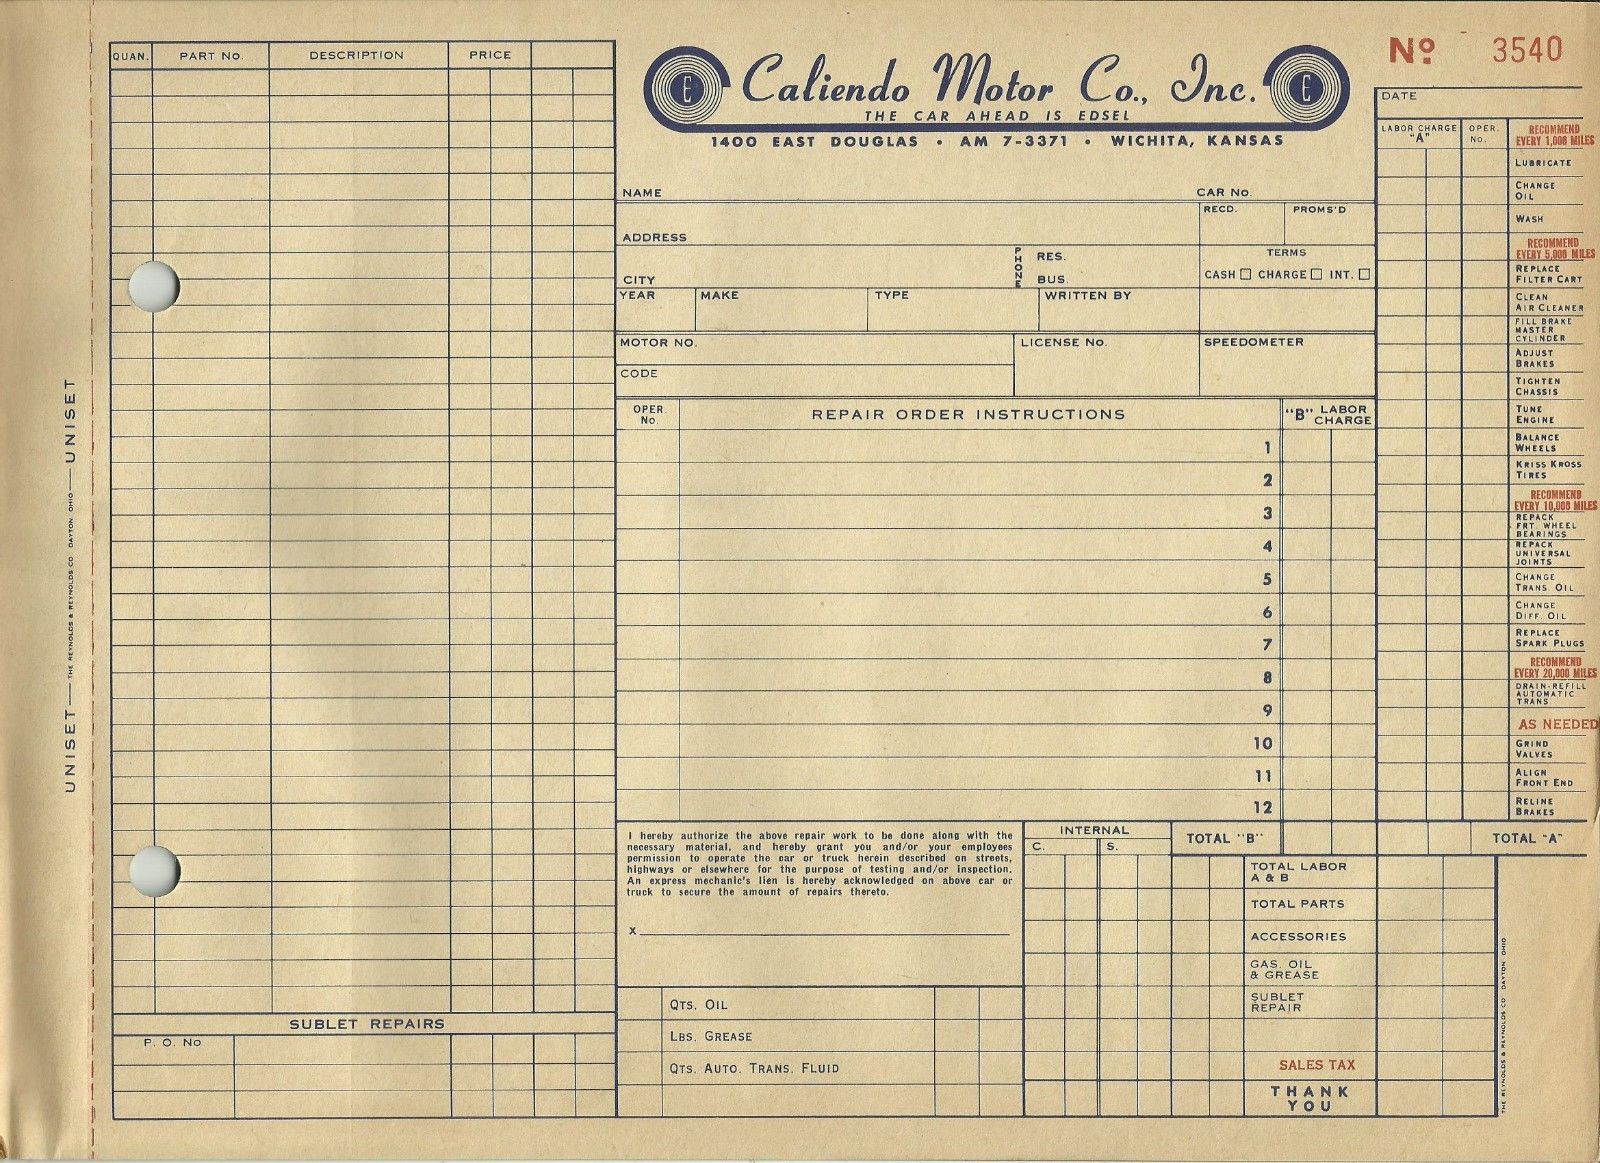 UNISET — THE REYNOLDS & REYNOLDS CO DAYTON, OHIO — UNISET
QUAN. PART NO. DESCRIPTION PRICE
SUBLET REPAIRS
P. O. No
E Caliendo Motor Co., Inc. E
THE CAR AHEAD IS EDSEL
1400 EAST DOUGLAS • AM 7-3371 • WICHITA, KANSAS
Nº 3540
NAME CAR No.
RECD. PROMS'D
ADDRESS
PHONE RES. TERMS
CITY BUS. CASH CHARGE INT.
YEAR MAKE TYPE WRITTEN BY
MOTOR NO. LICENSE No. SPEEDOMETER
CODE
OPER. No. REPAIR ORDER INSTRUCTIONS "B" LABOR CHARGE
1
2
3
4
5
6
7
8
9
10
11
12
I hereby authorize the above repair work to be done along with the
necessary material, and hereby grant you and/or your employees
permission to operate the car or truck herein described on streets,
highways or elsewhere for the purpose of testing and/or inspection.
An express mechanic's lien is hereby acknowledged on above car or
truck to secure the amount of repairs thereto.
X
QTS. OIL
LBS. GREASE
QTS. AUTO. TRANS. FLUID
INTERNAL
C. S.
TOTAL "B"
TOTAL "A"
TOTAL LABOR
A & B
TOTAL PARTS
ACCESSORIES
GAS. OIL
& GREASE
SUBLET
REPAIR
SALES TAX
THANK
YOU
DATE
LABOR CHARGE "A" OPER. No.
RECOMMEND
EVERY 1,000 MILES
LUBRICATE
CHANGE
OIL
WASH
RECOMMEND
EVERY 5,000 MILES
REPLACE
FILTER CART
CLEAN
AIR CLEANER
FILL BRAKE
MASTER
CYLINDER
ADJUST
BRAKES
TIGHTEN
CHASSIS
TUNE
ENGINE
BALANCE
WHEELS
KRISS KROSS
TIRES
RECOMMEND
EVERY 10,000 MILES
REPACK
FRT. WHEEL
BEARINGS
REPACK
UNIVERSAL
JOINTS
CHANGE
TRANS. OIL
CHANGE
DIFF. OIL
REPLACE
SPARK PLUGS
RECOMMEND
EVERY 20,000 MILES
DRAIN-REFILL
AUTOMATIC
TRANS
AS NEEDED
GRIND
VALVES
ALIGN
FRONT END
RELINE
BRAKES
THE REYNOLDS & REYNOLDS CO DAYTON OHIO